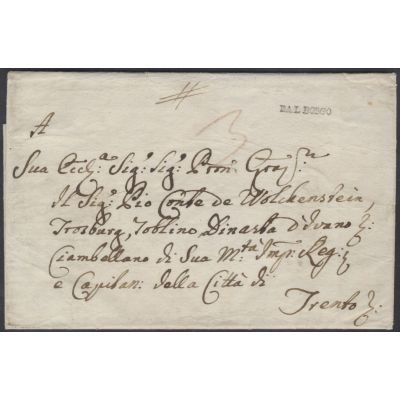 DAL BORGO
3
A
Sua Ecclᵃ Sigʳ: Sigʳ: Pronᵉ Grazᵐ
Il Sigʳ: Pio Conte de Wolckenstein,
Trosburg, Toblino, Dinasta d'Ivano &:
Ciambellano di Sua Mᵗᵃ Impˡ: Reg: &
e Capitan: della Città di
Trento &: